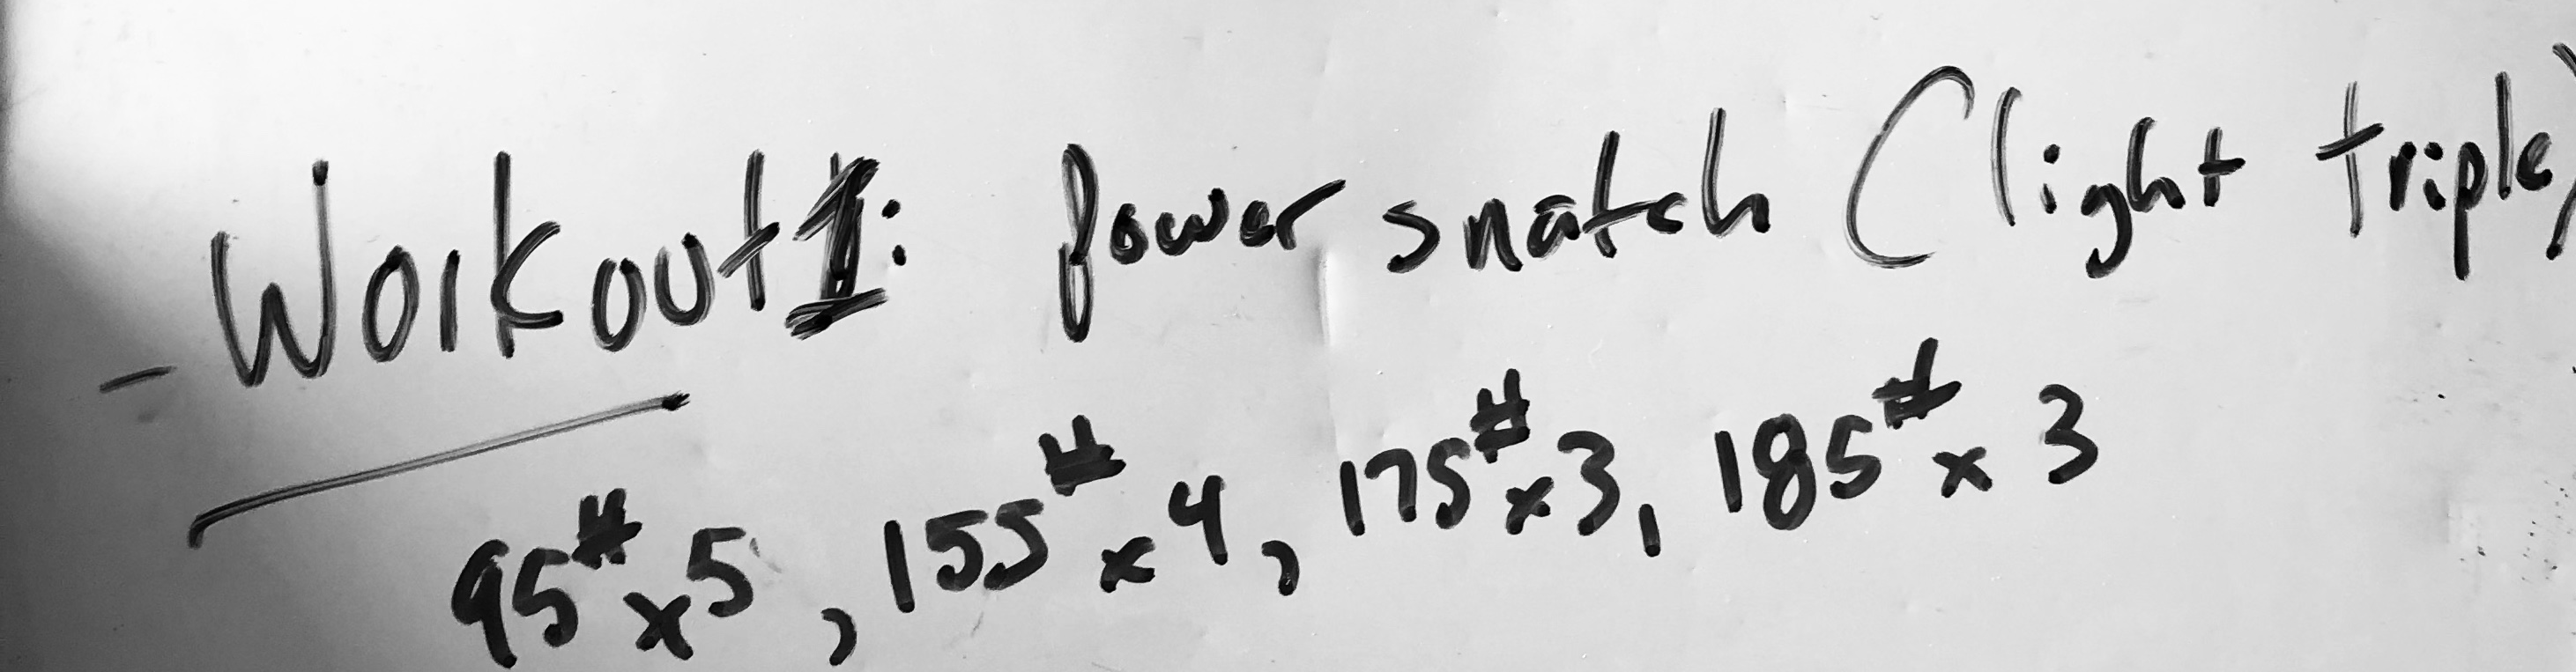 - Workout 1: Power snatch (light triple)
95# x 5, 155# x 4, 175# x 3, 185# x 3